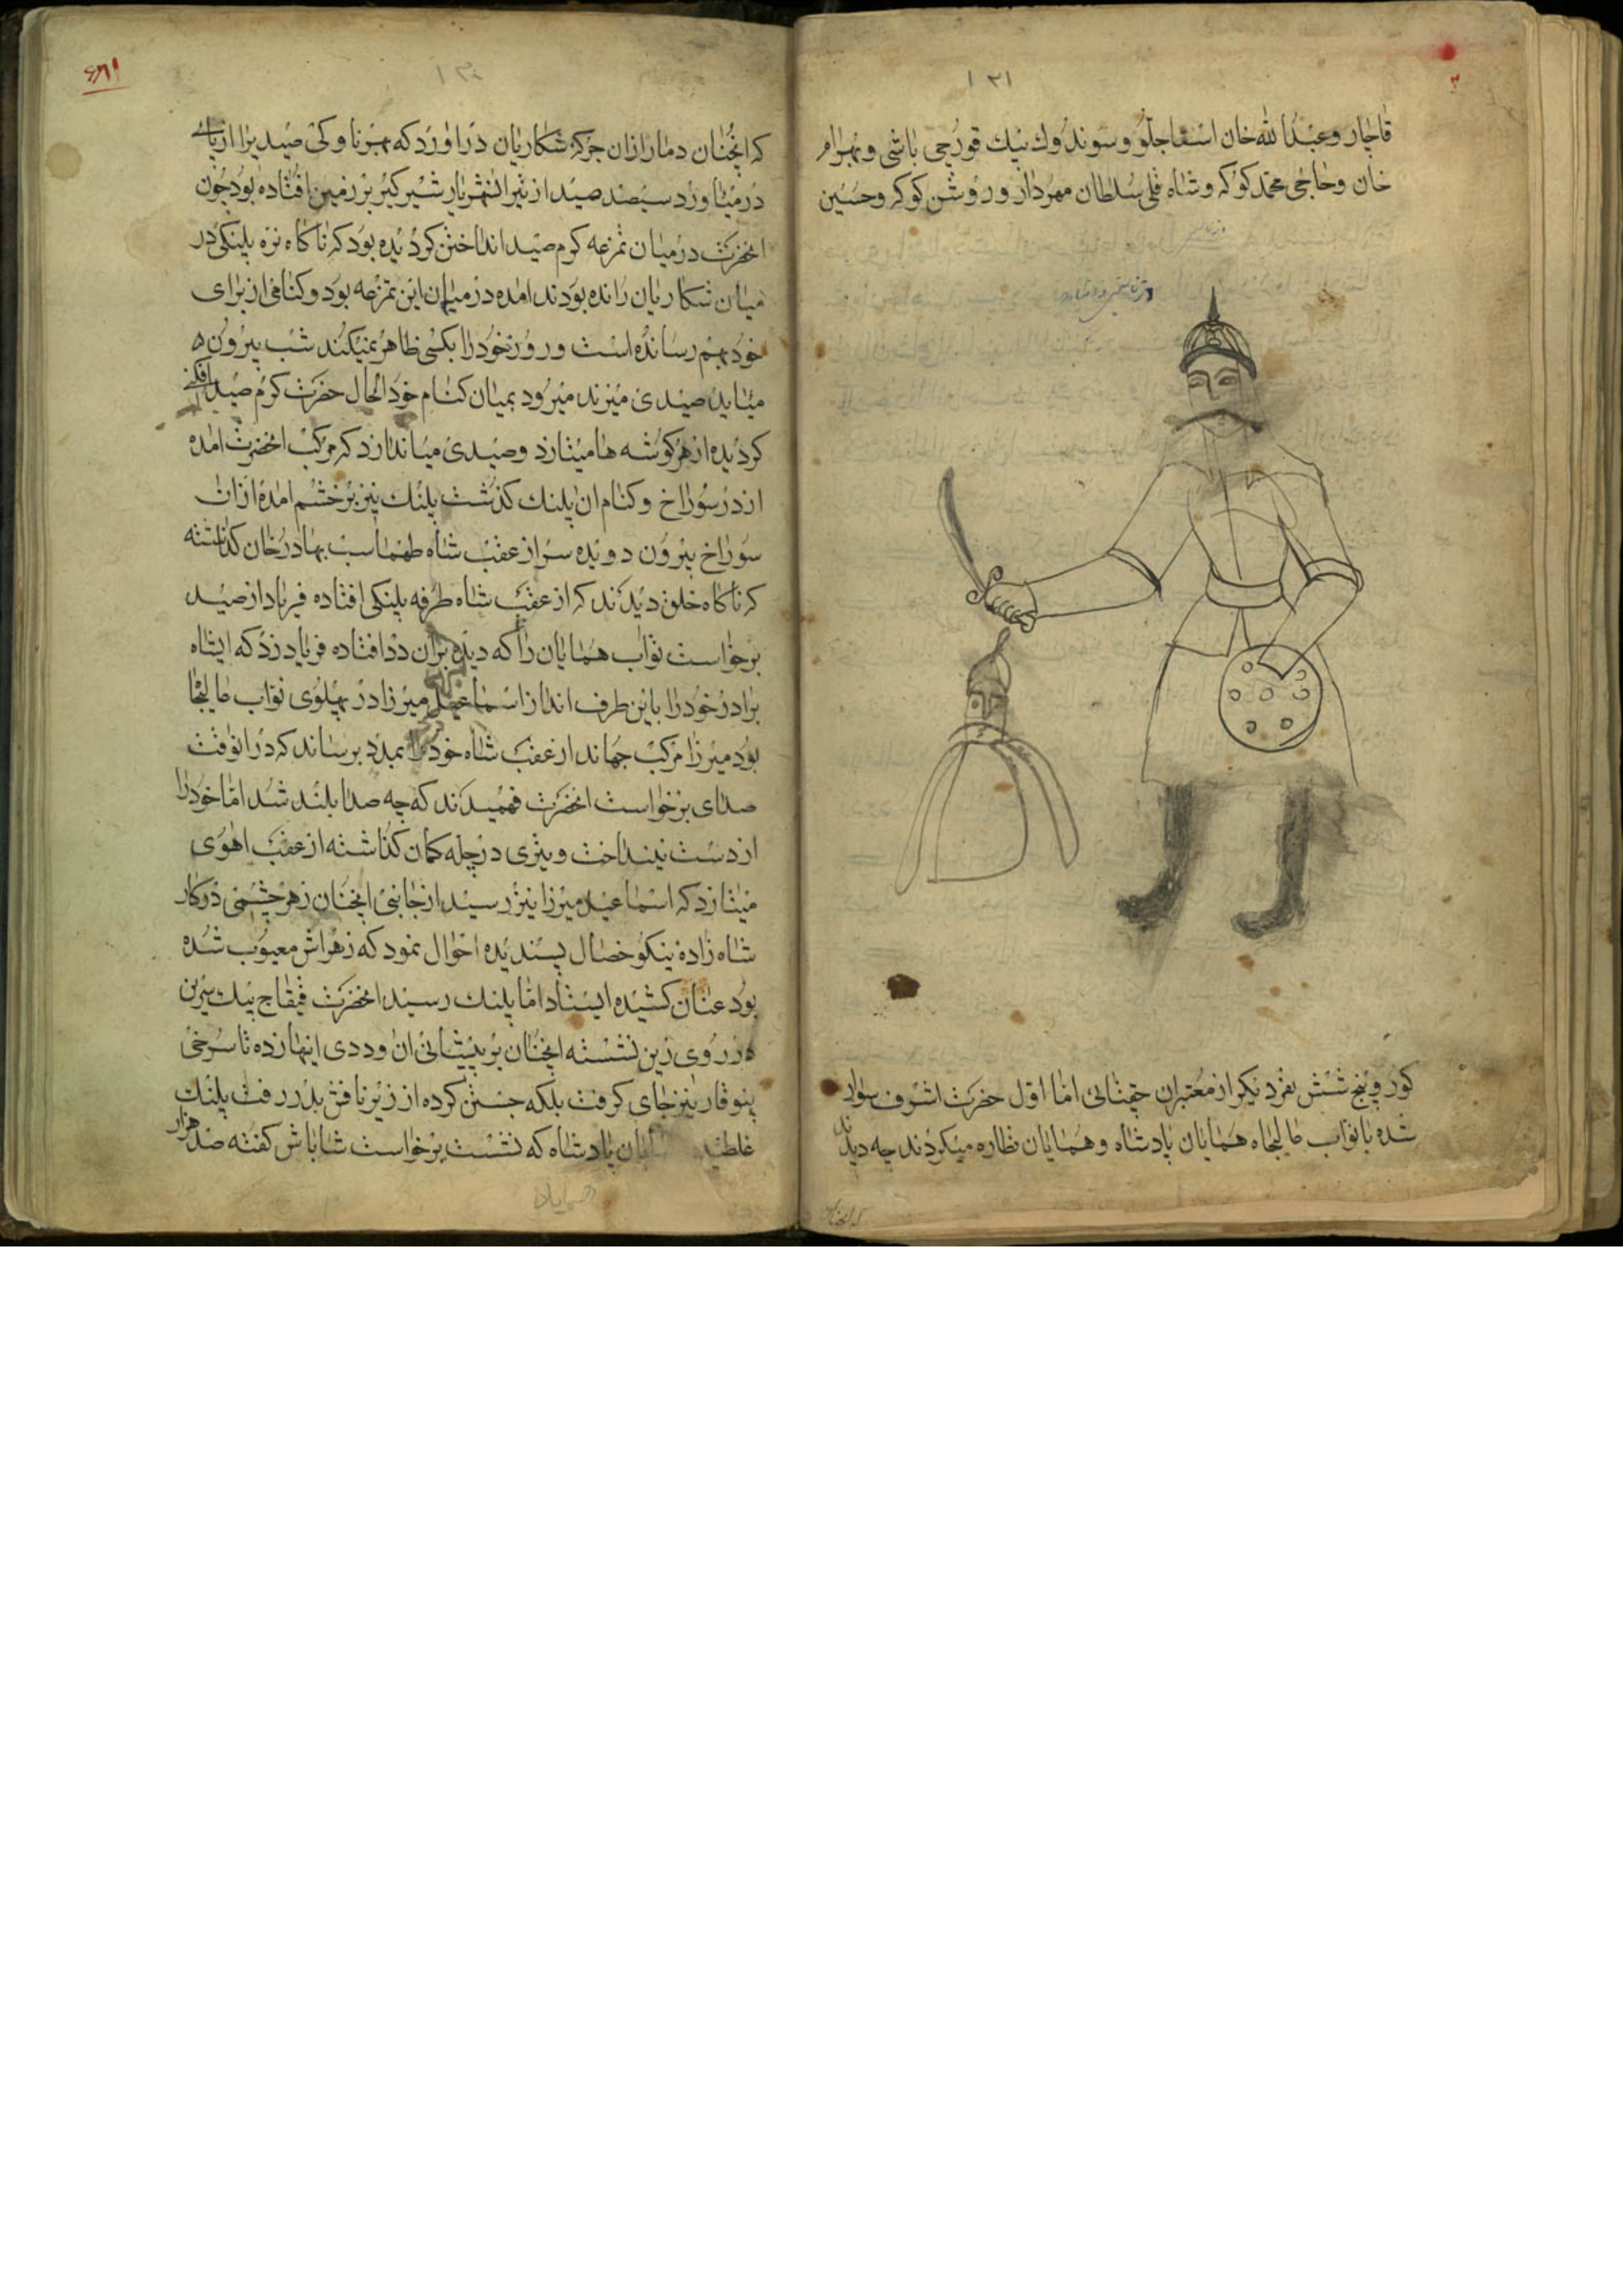 ۱۳۱
قاجار و عبدالله خان استاجلو و سوندوك بيك قورچی باشی و بهرام
خان و حاجی محمد کوکه و شاه قلی سلطان مهردار و روشن کوکه و حسین
کور و پنج شش نفر دیکر از معتبران چقتائی اما اول حضرت اشرف سوار
شده با نواب عالیجاه همایان پادشاه و همایان نظاره میکردند چه دیدند
که انچنان
۱۳۰
که انچنان دمار ازان جرکه شکاریان دراورد که بهرنا وکی صیدیرا از پای
درمیاورد سیصد صید از تیر انشهریار شیرکیر بر زمین افتاده بود چون
انحضرت در میان تمرغه کرم صید انداختن کردیده بود که ناکاه نره پلنکی در
میان شکاریان رانده بودند امده در میان این تمرغه بود و کنافی از برای
خود بهم رسانده است و روز خود را بکسی ظاهر نمیکند شب بیرون
میاید صیدی میزند میرود بمیان کنام خود الحال حضرت کرم صید افکنی
کردیده از هر کوشه ها میتازد و صیدی میاندازد که مرکب انحضرت امده
از در سوراخ و کنام ان پلنك کذشت پلنك نیز بر خشم امده ازان
سوراخ بیرون دویده سر از عقب شاه طهماسب بهادرخان کذاشته
که ناکاه خلق دیدند که از عقب شاه طرفه پلنکی افتاده فریاد از صید
برخواست نواب همایان را که دیده بران دد افتاده فریاد زد که ایشاه
برادر خود را باین طرف انداز اسماعیل میرزا در پهلوی نواب عالیجا
بود میرزا مرکب جهاند از عقب شاه خود را بمدد برساند که در انوقت
صدای برخواست انحضرت فهمیدند که چه صدا بلند شد اما خود را
از دست نینداخت و تیری در چله کمان کذاشته از عقب اهوی
میتازد که اسماعیل میرزا نیز رسید از جانبی انچنان زهرچشمی در کار
شاه زاده نیکو خصال پسندیده احوال نمود که زهراش معیوب شده
بود عنان کشیده ایستاد اما پلنك رسید انحضرت قیقاج بیك سرین
در روی زین نشسته انچنان بر پیشانی ان وددی اینها زده تا سرخی
پنوقار نیز جای کرفت بلکه جستن کرده از زیر نافش بدر رفت پلنك
غلطید همایان پادشاه که نشست برخواست شاباش کفته صد هزار
همایان